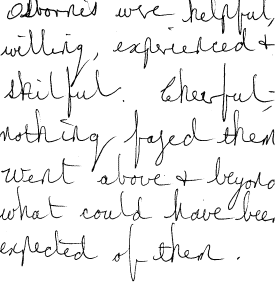 Osbornes were helpful,
willing, experienced +
skilful. Cheerful -
nothing fazed them
Went above + beyond
what could have been
expected of them.